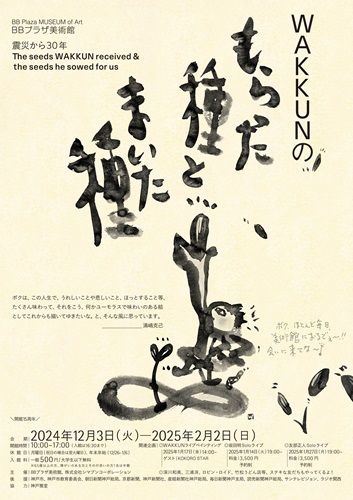 BB Plaza MUSEUM of Art
BBプラザ美術館
震災から30年
The seeds WAKKUN received &
the seeds he sowed for us
WAKKUNの
もらった
種と
まいた
種
ボクは、この人生で、うれしいことや悲しいこと、はっとすること等、
たくさん味わって、それをこう、何かユーモラスで味わいのある絵
としてこれからも描いてゆきたいな。と、そんな風に思っています。
涌嶋克己
ボク、ほとんど毎日
美術館におるでぇ〜!!
会いに来てな〜
＼開館15周年／
会期 2024年12月3日(火)―2025年2月2日(日)
開館時間 10:00~17:00(入館は16:30まで)
休館日 月曜日(祝日の場合は翌火曜)、年末年始(12/26-1/6)
入館料 一般500円/大学生以下無料
主催 BBプラザ美術館、株式会社シマブンコーポレーション
後援 神戸市、神戸市教育委員会、朝日新聞神戸総局、京都新聞、神戸新聞社、産経新聞社神戸総局、毎日新聞神戸支局、読売新聞神戸総局、サンテレビジョン、ラジオ関西
協力 神戸賓室
関連企画 ◎WAKKUNライブペインティング
2025年1月17日(金)14:00~
ゲスト|KOKORO STAR
◎坂田明Solo ライブ
2025年1月14日(火)19:00~
料金|3,500円
予約制
◎友部正人Solo ライブ
2025年1月27日(月)19:00~
料金|3,500円
予約制